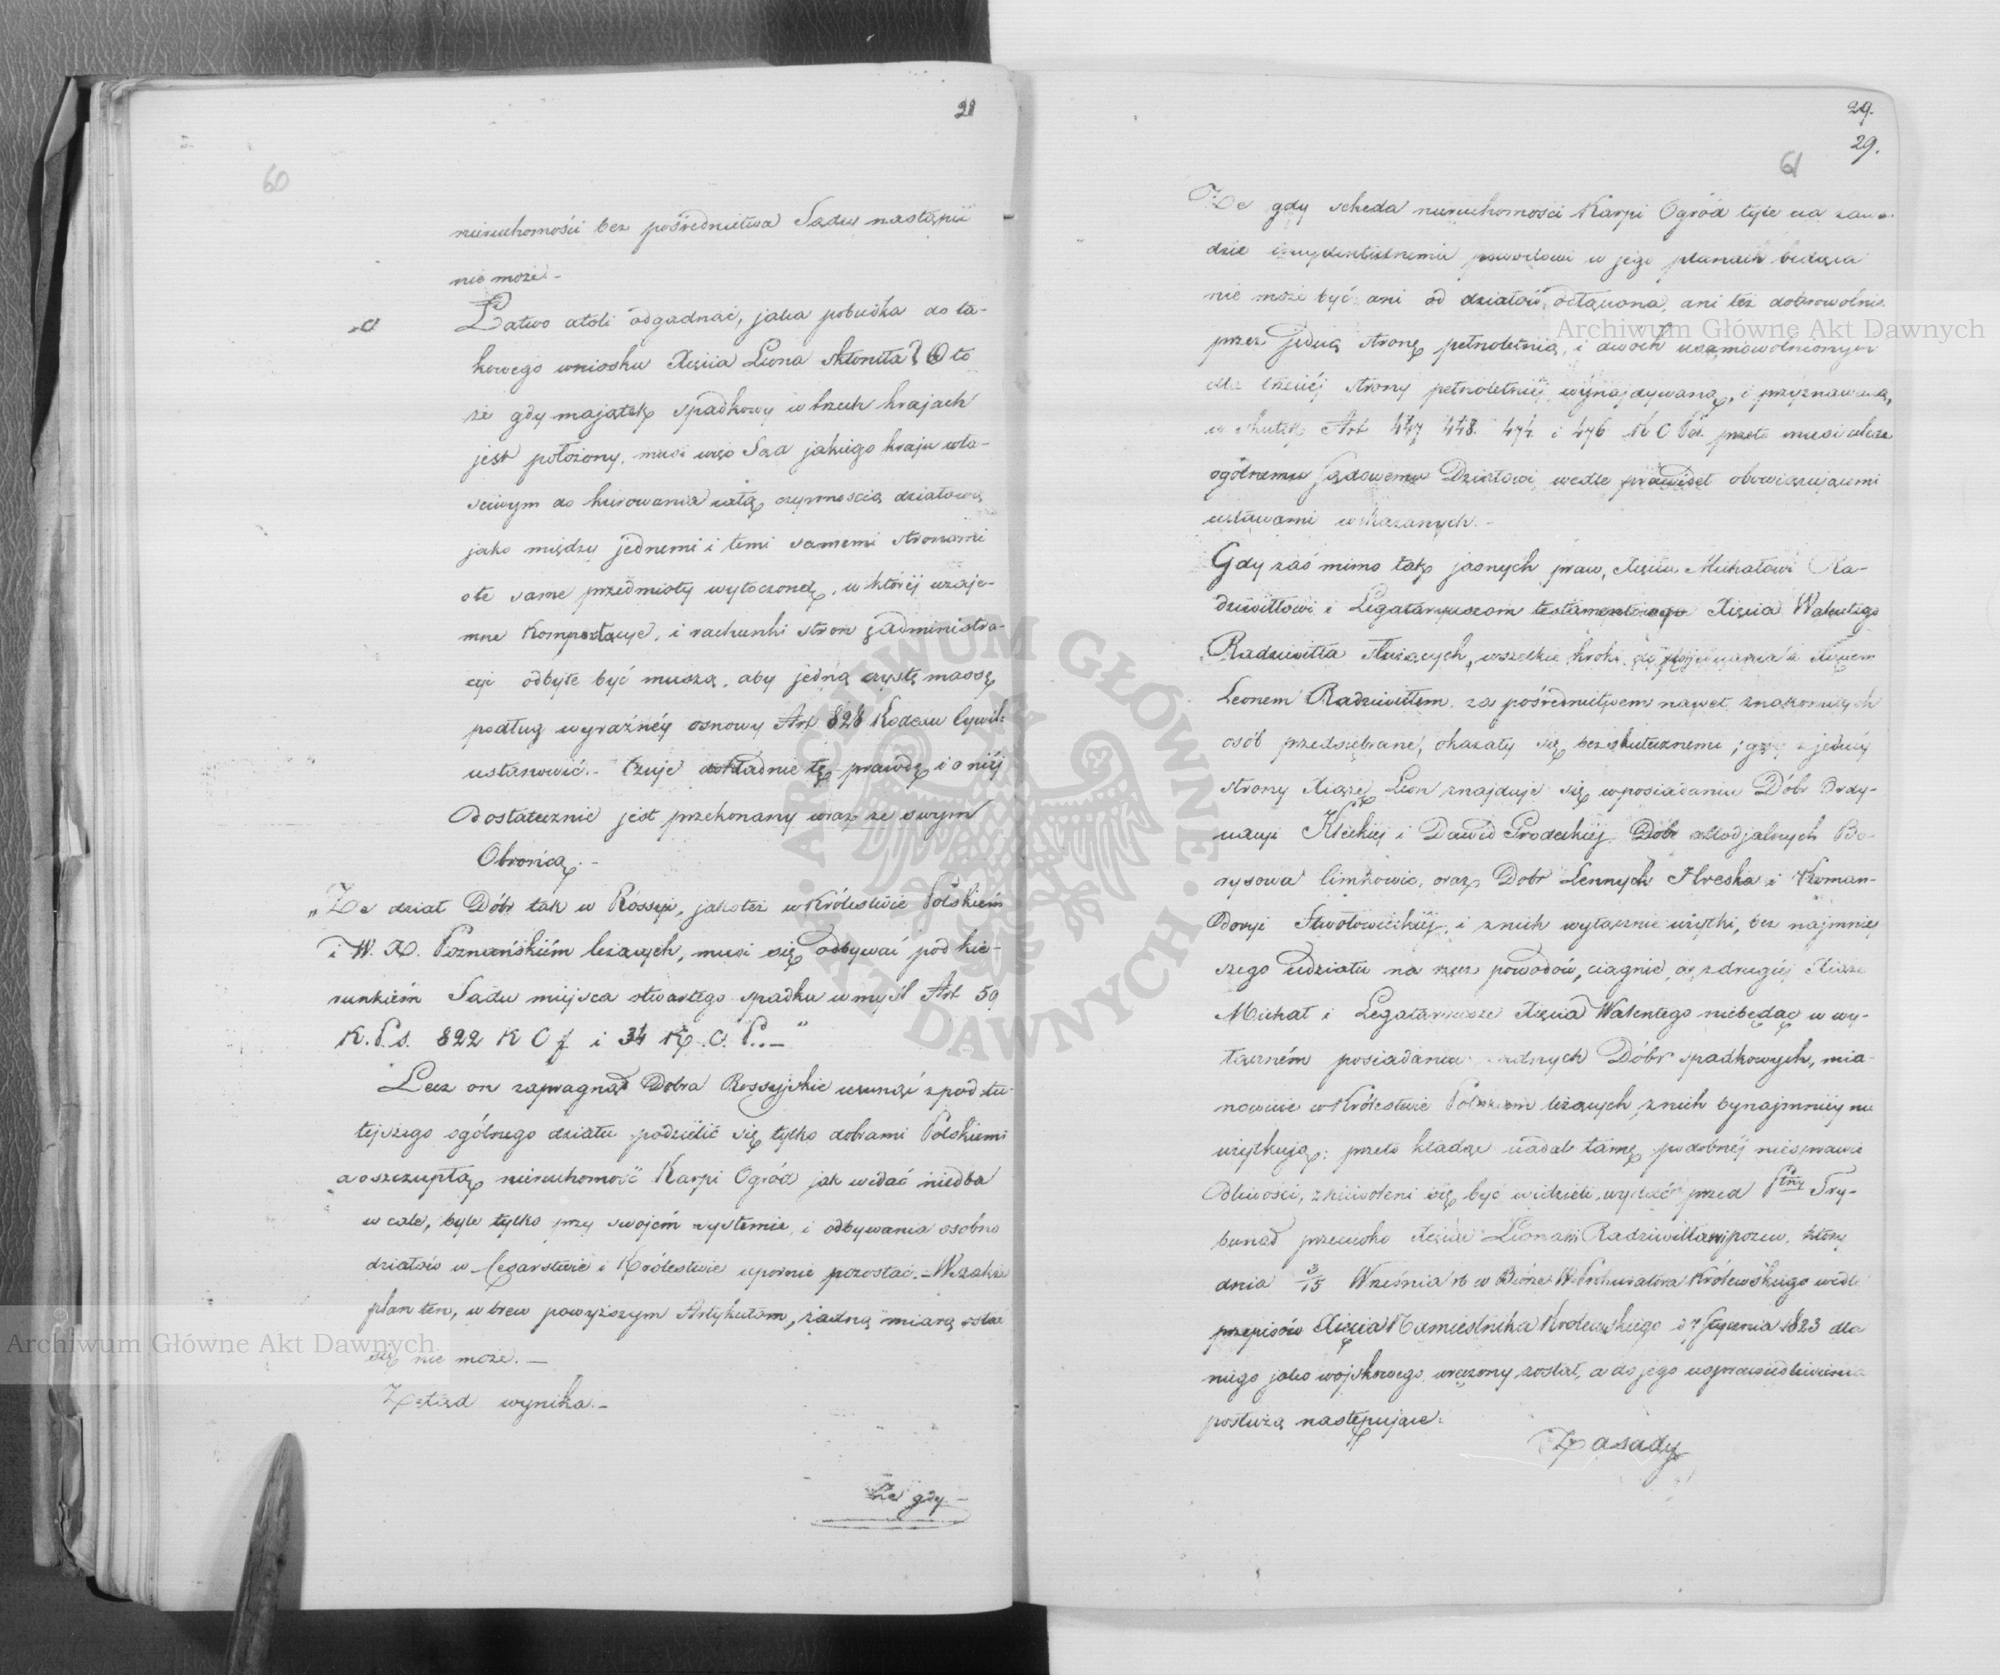 28
60
nieruchomości bez pośrednictwa Sądu nastąpić
nie może.-
Łatwo atoli odgadnąć, jaka pobudka do ta-
kowego wniosku Xięcia Leona skłoniła? Oto
że gdy majątek spadkowy w trzech krajach
jest położony, musi więc Sąd jakiego kraju wła-
ściwym do kierowania całą czynnością działową
jako między jednemi i temi samemi stronami
o te same przedmioty wytoczoną, w której wzaje-
mne Komportacye, i rachunki stron z administra-
cyi odbyte być muszą, aby jedną czystą massę
podług wyraźnéy osnowy Art 828 Kodexu Cywil:
ustanowić.- Czuje dokładnie tę prawdę i o niéj
Dostatecznie jest przekonany wraz ze swym
Obrońcą.-
„Że dział Dóbr tak w Rossyi, jakoteż w Królestwie Polskiém
i W. X. Poznańskiém leżących, musi się odbywać pod kie-
runkiém Sądu miejsca otwartego spadku w myśl Art 59
K.P.s. 822 K C f i 34 K.C.P..-"
Lecz on zapragnął Dobra Rossyjskie usunąć z pod tu-
tejszego ogólnego działu podzielić się tylko dobrami Polskiemi
a o szczupłą nieruchomość Karpi Ogród jak widać niedba
w cale, byle tylko przy swojém systemie, i odbywania osobno
działów w Cesarstwie i Królestwie upornie pozostać.- Wszakże
plan ten, w brew powyższym Artykułom, żadną miarą ostać
się nie może.-
Ztąd wynika.-
Że gdy-
29.
29.
61
Że gdy scheda nieruchomości Karpi Ogród tyle na zawa-
dzie powodowi w jego planach będąca
nie może być ani od działów odłączona, ani też dobrowolnie
przez jedną stronę pełnoletnią, i dwóch usamowolnionych
dla trzeciéj strony pełnoletniéj wynajdywaną, i przyznawaną,
w skutek Art 447 448. 474 i 476 K C Pol. przeto musi uledz
ogólnemu Sądowemu Działowi, wedle prawideł obowiązującemi
ustawami wskazanych.-
Gdy zaś mimo tak jasnych praw, Xięciu Michałowi Ra-
dziwiłłowi i Legataryuszom testamentowego Xięcia Walentego
Radziwiłła służących, wszelkie kroki do pojednania z Xięciem
Leonem Radziwiłłem za pośrednictwem nawet znakomitych
osób przedsiębrane, okazały się bezskutecznemi; gdy z jednéj
strony Xiąże Leon znajduje się w posiadaniu Dóbr Ordy-
nacyi Kleckiéj i Dawid Grodeckiéj Dóbr allodjalnych Bo-
rysowa Cimkowic, oraz Dobr Lennych Hreska i Koman-
doryi Stwołowickiéj, i z nich wyłącznie użytki, bez najmniéj
szego udziału na rzecz powodów, ciągnie, a z drugiéj Xiąże
Michał i Legataryusze Xięcia Walentego niebędąc w wy-
łączném posiadaniu żadnych Dóbr spadkowych, mia-
nowicie w Królestwie Polskiem leżących z nich bynajmniéj nie
użytkują: przeto kładąc nadal tamę podobnéj niesprawie
dliwości, zniewoleni się być widzieli, wydać przed Ptny Try-
bunał przeciwko Xięciu Leonowi Radziwiłłowi pozew, który
dnia 3/15 Września r b w Biórze W. Prokuratora Królewskiego wedle
przepisów Xięcia Namiestnika Królewskiego d 7 Stycznia 1823 dla
niego jako wojskowego wręczony został, a do jego usprawiedliwienia
posłużą następujące:
Zasady
Archiwum Główne Akt Dawnych
Archiwum Główne Akt Dawnych
ARCHIWUM GŁÓWNE AKT DAWNYCH